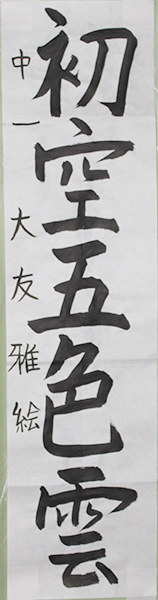 初空五色雲
中一 大友雅絵